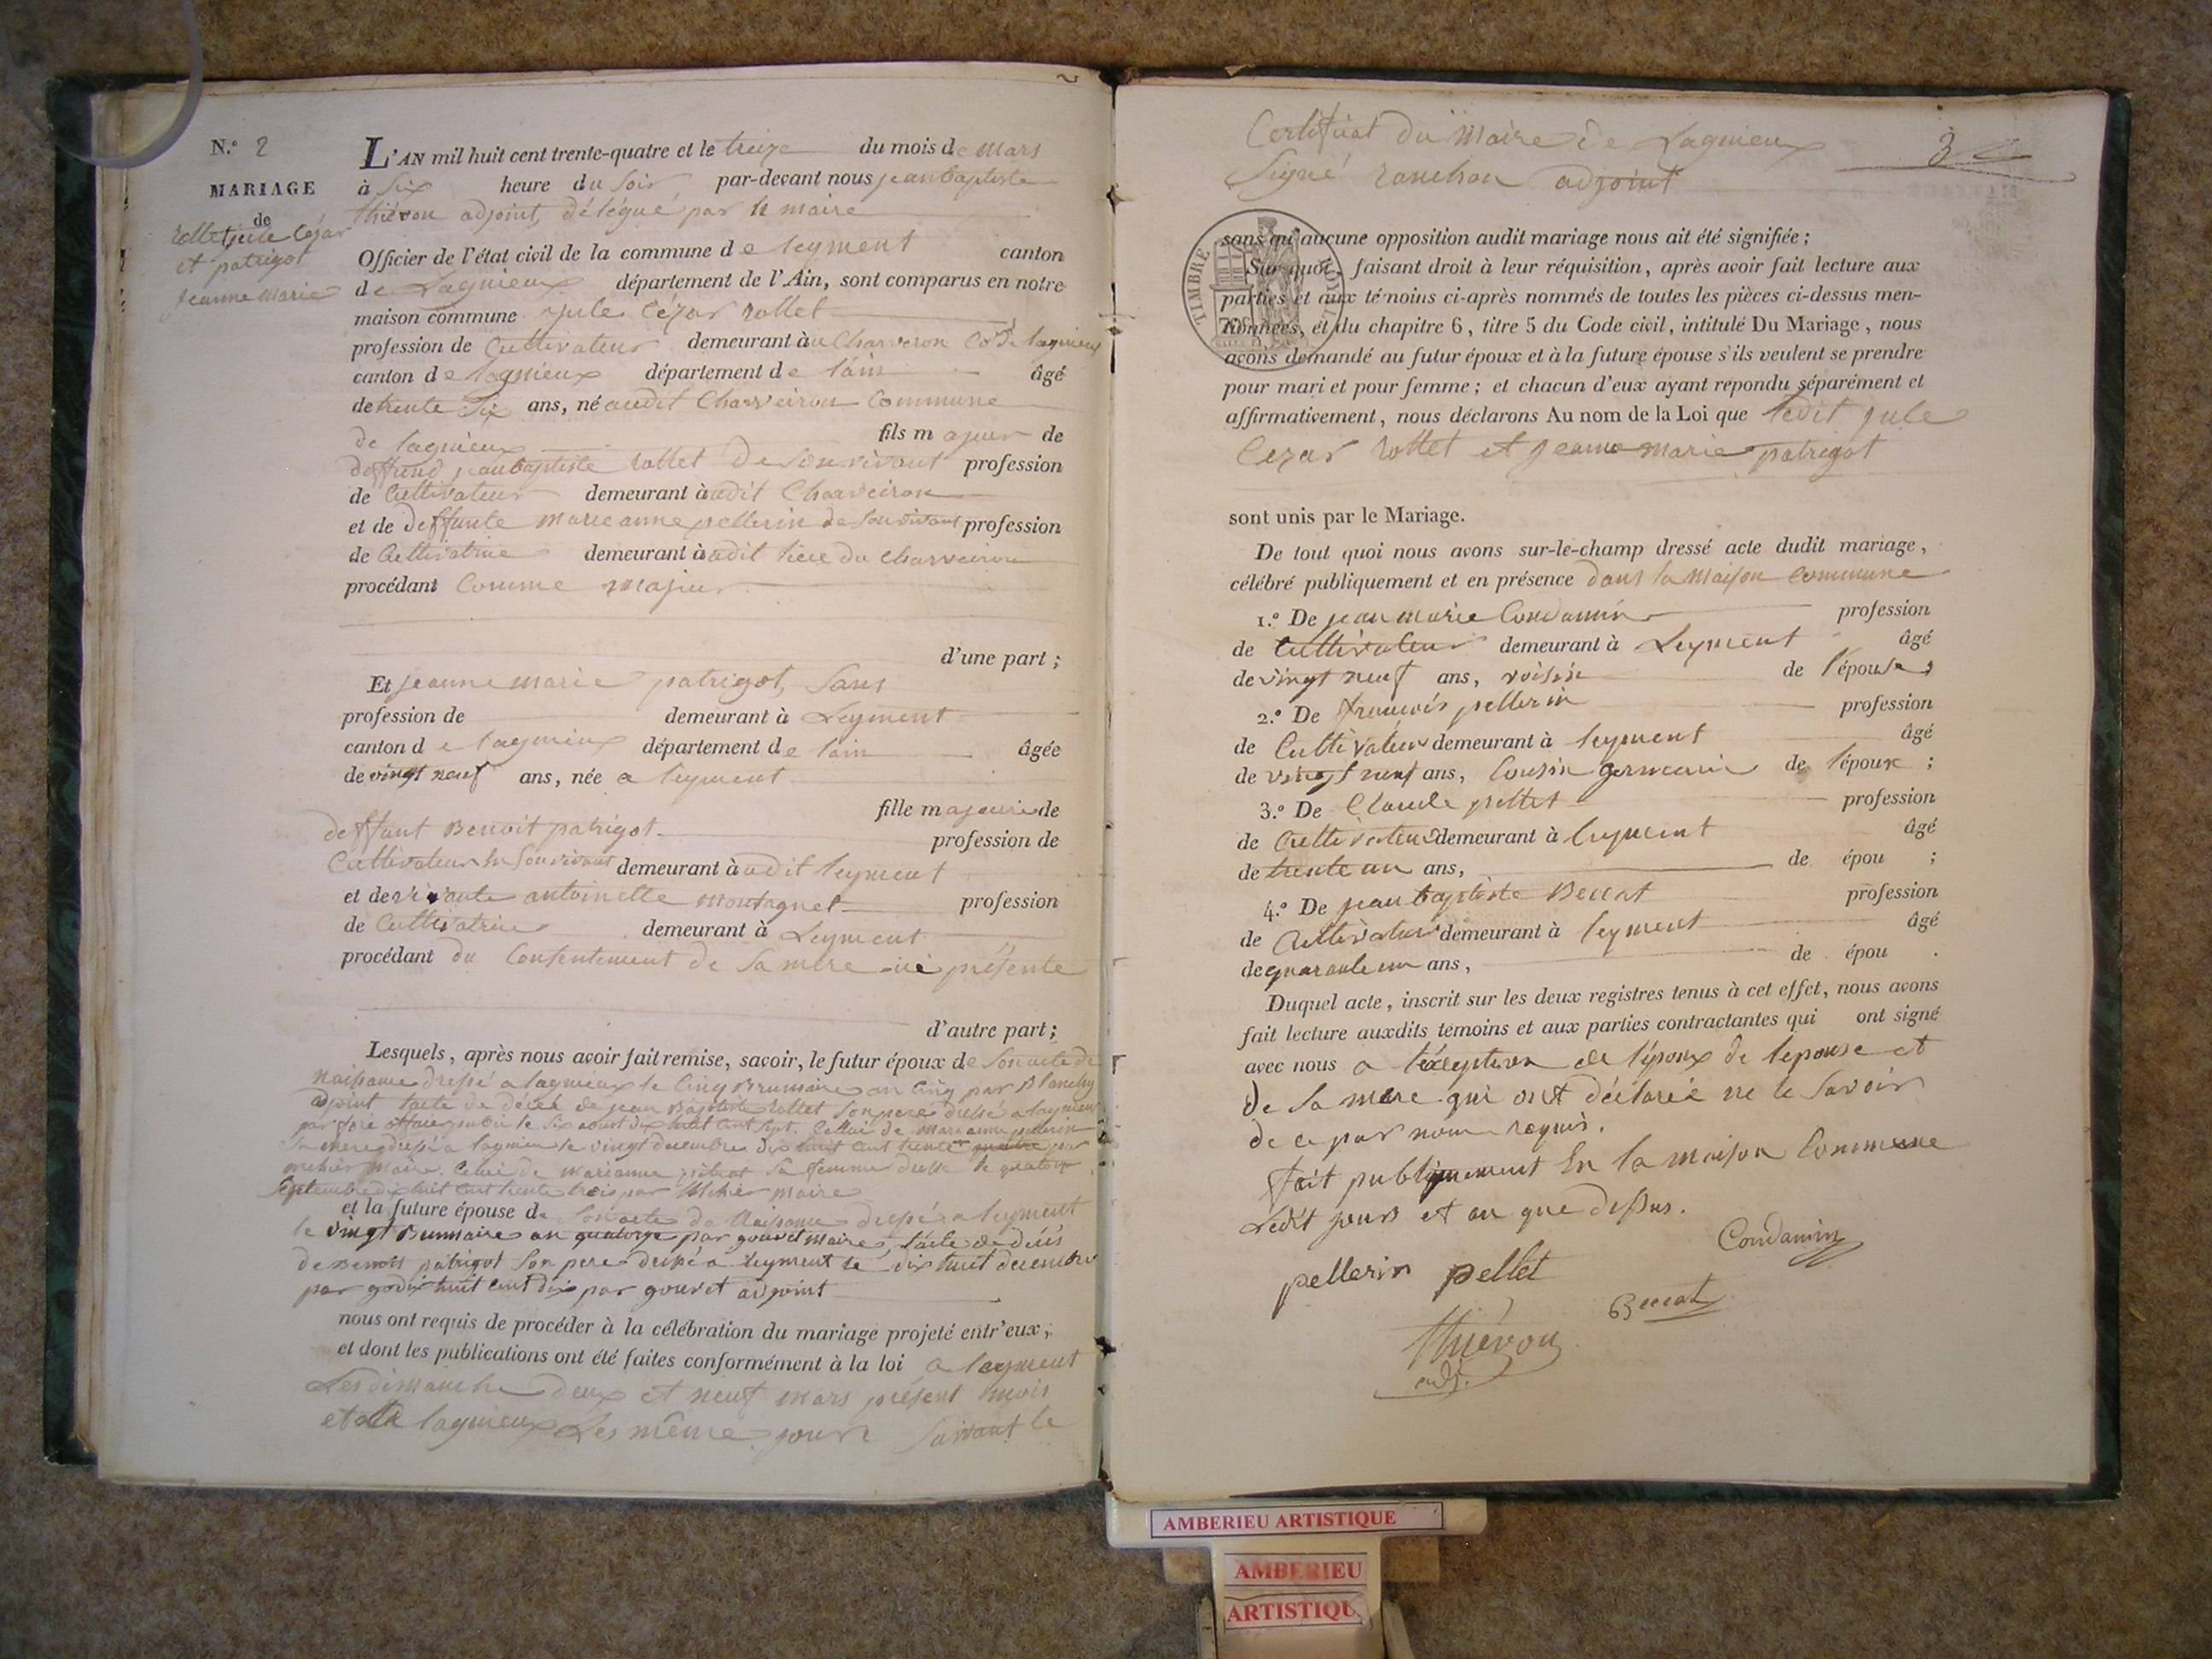 N.º 2
MARIAGE
de
rollet jule Cézar
et patrigot
Jeanne Marie
L'AN mil huit cent trente-quatre et le treize du mois de Mars
à Six heure du Soir par-devant nous jean baptiste
thiévon adjoint, délégué par le maire
Officier de l'état civil de la commune de leyment canton
de Lagnieux département de l'Ain, sont comparus en notre
maison commune jule Cézar rollet
profession de Cultivateur demeurant à Charveron Cne de lagnieux
canton de lagnieux département de l'ain âgé
de trente Six ans, né audit Charveiron Commune
de lagnieux fils majeur de
deffunt jean baptiste rollet de Son vivant profession
de Cultivateur demeurant à udit Charveiron
et de deffunte marie anne pellerin de Son vivant profession
de Cultivatrice demeurant à udit lieu du Charveiron
procédant Comme majeur
d'une part ;
Et jeanne marie patrigot, Sans
profession de demeurant à Leyment
canton de lagnieux département de l'ain âgée
de vingt neuf ans, née a leyment
fille majeure de
deffunt Benoit patrigot profession de
Cultivateur de Son vivant demeurant à udit leyment
et de vivante antoinette montagnet profession
de Cultivatrice demeurant à Leyment
procédant du Consentement de Sa mère ici présente
d'autre part ;
Lesquels, après nous avoir fait remise, savoir, le futur époux de Son acte de
naissance dressé a lagnieux le Cinq Brumaire an Cinq par Blanchy
adjoint l'acte de décès de jean Baptiste rollet Son pere dressé a lagnieux
par officier public le Six aout dix huit cent Sept. Celui de marianne pellerin
Sa mere dressé a lagnieux le vingt decembre dix huit cent trente par
maire. Celui de marianne Sa femme dressé le quatorze
Septembre dix huit cent trente trois par maire
et la future épouse de Son acte de Naissance dressé a leyment
le vingt Brumaire an quatorze par gouvet maire, l'acte de décès
de Benoit patrigot Son pere dressé a leyment le dix huit decembre
dix huit cent dix par gouvet adjoint
nous ont requis de procéder à la célébration du mariage projeté entr'eux,
et dont les publications ont été faites conformément à la loi a leyment
Les dimanche deux et neuf mars présent mois
et a lagnieux Les même jours Suivant le
Certificat du Maire de Lagnieux 3
Signé ranchon adjoint
TIMBRE ROYAL
sans qu'aucune opposition audit mariage nous ait été signifiée ;
Sur quoi, faisant droit à leur réquisition, après avoir fait lecture aux
parties et aux témoins ci-après nommés de toutes les pièces ci-dessus men-
tionnées, et du chapitre 6, titre 5 du Code civil, intitulé Du Mariage, nous
avons demandé au futur époux et à la future épouse s'ils veulent se prendre
pour mari et pour femme ; et chacun d'eux ayant repondu séparément et
affirmativement, nous déclarons Au nom de la Loi que ledit jule
Cezar rollet et jeanne marie patrigot
sont unis par le Mariage.
De tout quoi nous avons sur-le-champ dressé acte dudit mariage,
célébré publiquement et en présence dans la Maison Commune
1.º De jean marie Condamin profession
de Cultivateur demeurant à Leyment âgé
de vingt neuf ans, voisin de l'épouse ;
2.º De françois pellerin profession
de Cultivateur demeurant à leyment âgé
de vingt neuf ans, Cousin germain de l'époux ;
3.º De Claude pellet profession
de Cultivateur demeurant à leyment âgé
de trente un ans, de épou ;
4.º De jean baptiste Beccat profession
de Cultivateur demeurant à leyment âgé
de quarante un ans, de épou .
Duquel acte, inscrit sur les deux registres tenus à cet effet, nous avons
fait lecture auxdits temoins et aux parties contractantes qui ont signé
avec nous a l'exeption de l'époux de lepouse et
de Sa mere qui ont déclaré ne le Savoir
de ce par nous requis.
fait publiquement En la maison Commune
Ledit jours et an que dessus.
Condamin
pellerin pellet
Beccat
thiévon
adj.
AMBERIEU ARTISTIQUE
AMBERIEU
ARTISTIQU